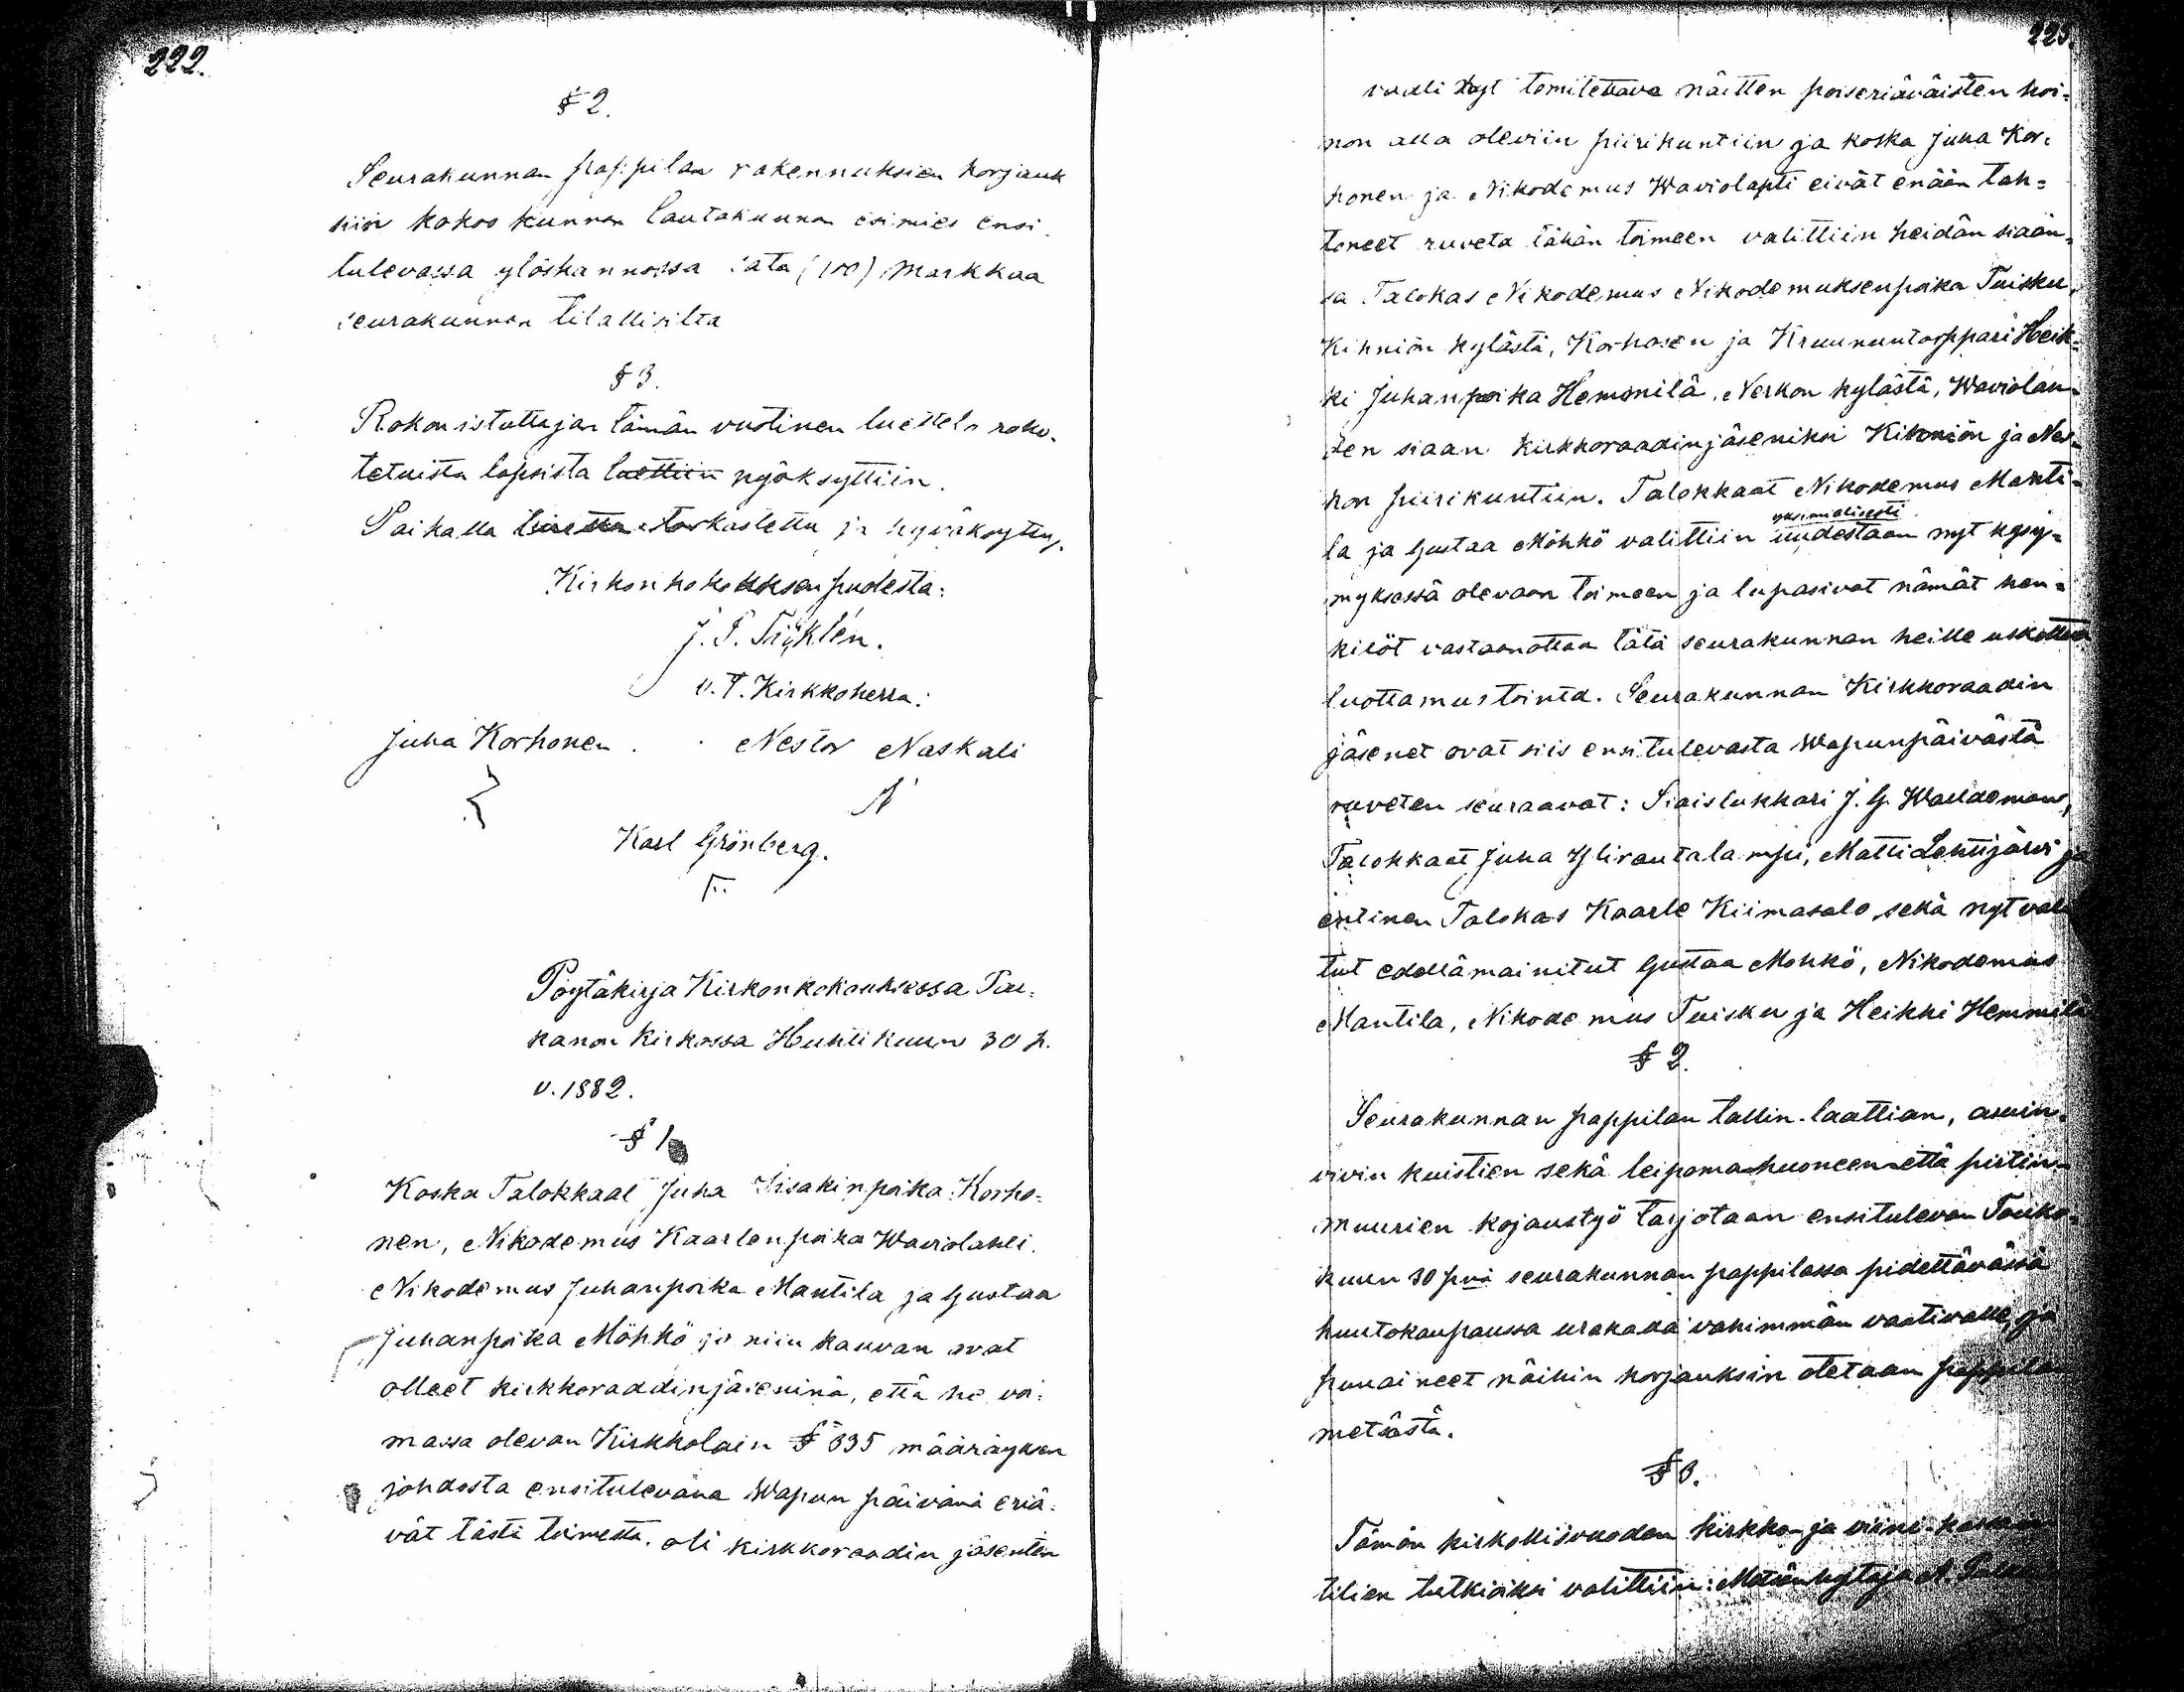 222.
§ 2.
Seurakunnan pappilan rakennuksien korjauk
siin kokoo kunnan lautakunnan esimies ensi
tulevassa ylöskannossa sata (100) markkaa
seurakunnan tilallisilta
§ 3.
Rokonistuttajan tämän vuotinen luettelo roko-
tetuista lapsista luettiin hyöksyttiin.
Paikalla luettu tarkastettu ja hyväksytty,
Kirkonkokouksen puolesta:
J. F.
v. T. Kirkkoherra.
Juha Korhonen. Nestor Naskali
Karl Grönberg.
Pöytäkirja Kirkonkokouksessa Par-
kanon Kirkossa Huhtikuun 30 p.
v. 1882.
§ 1
Koska Talokkaat Juha Iisakinpoika Korho-
nen, Nikodemus Kaarlenpoika Waviolahti
Nikodemus Juhanpoika Mantila ja Gustaa
Juhanpoika Möhkö jo niin kauvan ovat
olleet kirkkoraadinjäseninä, että he voi-
massa olevan Kirkkolain § 335 määräyksen
johdosta ensitulevana Wapun päivänä eriä-
vät tästä toimesta, oli kirkkoraadin jäsenten
223.
vaali nyt tomitettava näitten poiseriäväisten hoi-
non alla oleviin piirikuntiin ja koska Juha Kor-
honen ja Nikodemus Waviolahti eivät enään tah-
toneet ruveta tähän toimeen valittiin heidän siaan-
sa Talokas Nikodemus Nikodemuksenpoika Tuisku,
Kihniön kylästä, Korhosen ja Kruununtorppari Heik-
ki Juhanpoika Hemmilä, Nerkon kylästä, Waviolan-
den siaan kirkkoraadinjäseniksi Kihniön ja Ner-
kon piirikuntiin. Talokkaat Nikodemus Manti-
yksimielisesti
la ja Gustaa Möhkö valittiin uudestaan nyt kysy-
myksessä olevaan toimeen ja lupasivat nämät hen-
kilöt vastaanottaa tätä seurakunnan heille uskottua
luottamustointa. Seurakunnan Kirkkoraadin
jäsenet ovat siis ensitulevasta Wapunpäivästä
ruveten seuraavat: Siaislukkari J. G. Waldeman,
Talokkaat Juha Ylirautalampi, Matti Lehtijärvi ja
entinen Talokas Kaarle Kiimasalo, sekä nyt vali
tut edellämainitut Gustaa Mohkö, Nikodemus
Mantila, Nikodemus Tuisku ja Heikki Hemmilä
§ 2.
Seurakunnan pappilan tallin-laattian, asuin-
rivin kuistien sekä leipoma-huoneen että pirtin-
muurien kojaustyö tarjotaan ensitulevan Touko-
kuun 30 pnä seurakunnan pappilassa pidettävässä
huutokaupassa urakalla vähimmän vaativalle, ja
puuaineet näihin korjauksiin otetaan pappilan
metsästä.
§ 3.
Tämän kirkollisvuoden kirkko- ja viini-kassan
tilien tutkiaksi valittiin: Metsänhytaja A.